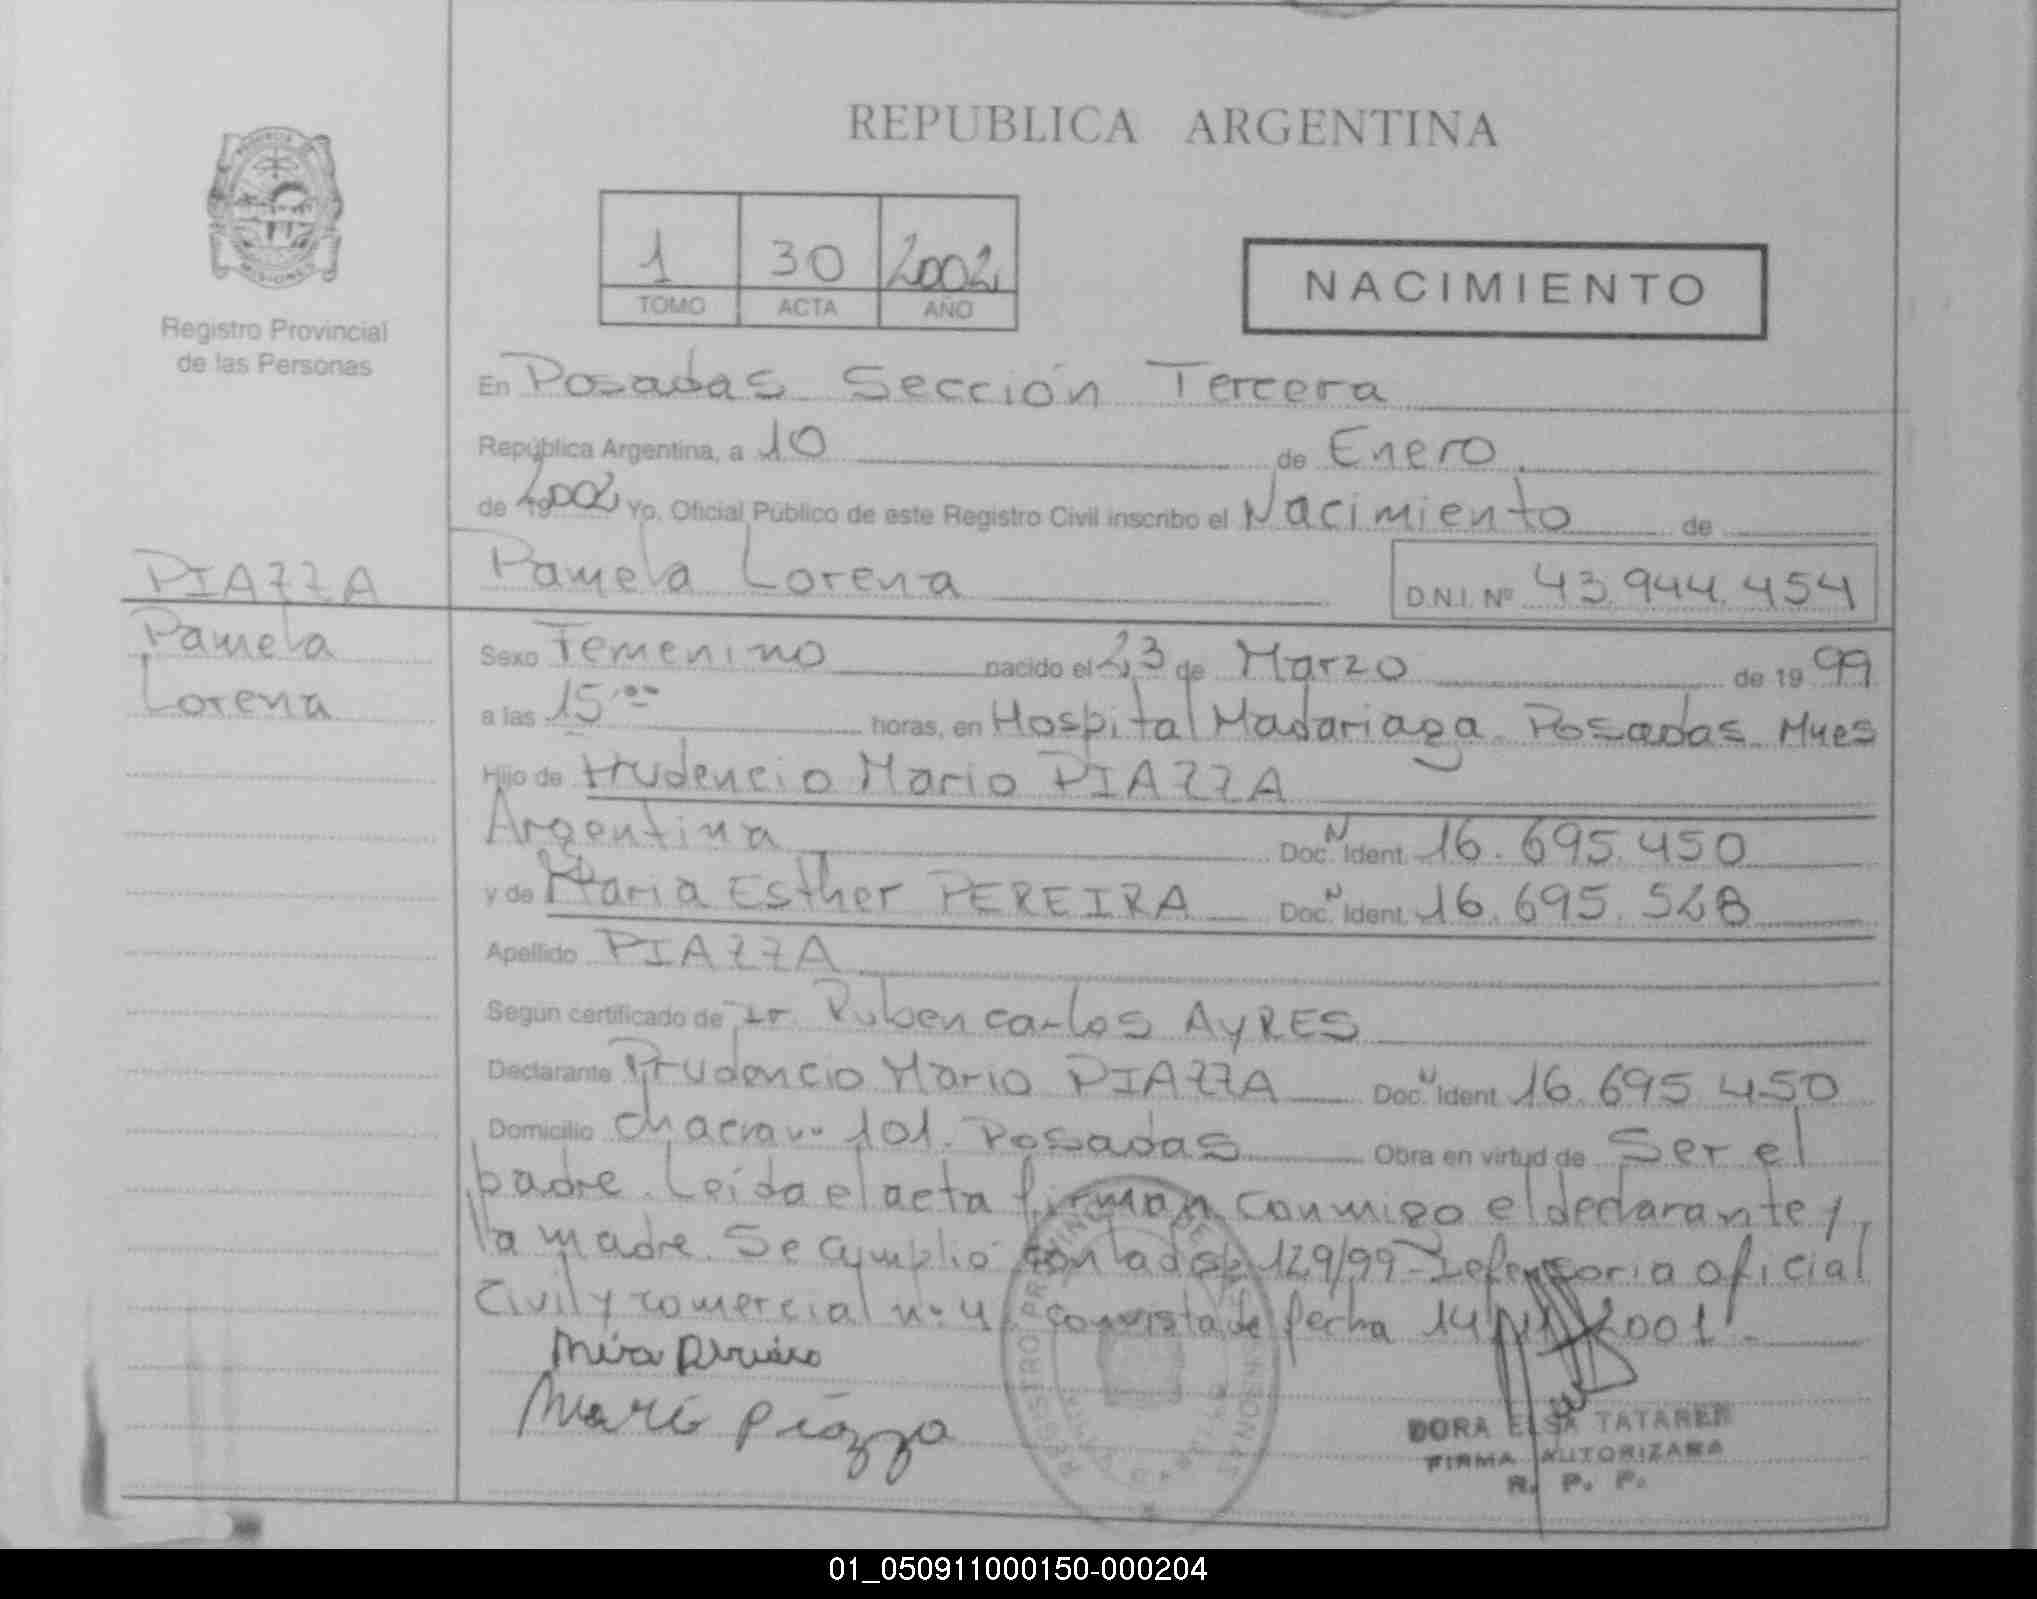 REPUBLICA ARGENTINA
1 30 2002
TOMO ACTA AÑO
NACIMIENTO
MISIONES
Registro Provincial
de las Personas
En Posadas Sección Tercera
República Argentina, a 10 de Enero
de 2002 Yo, Oficial Público de este Registro Civil inscribo el Nacimiento de
PIAZZA
Pamela Lorena D.N.I. Nº 43.944.454
Pamela
Lorena
Sexo Femenino nacido el 23 de Marzo de 19 99
a las 15,00 horas, en Hospital Madariaga Posadas Mnes
Hijo de Prudencio Mario PIAZZA
Argentina Doc. N Ident. 16.695.450
y de Maria Esther PEREIRA Doc. N Ident. 16.695.528
Apellido PIAZZA
Según certificado de Dr. Ruben carlos AYRES
Declarante Prudencio Mario PIAZZA Doc. N Ident. 16.695.450
Domicilio chacra nº 101. Posadas Obra en virtud de Ser el
padre. Leída el acta firman conmigo el declarante y
la madre. Se cumplió con la 129/99 - Defensoria oficial
Civil y comercial nº 4 con vista de fecha 14/11/2001.-
Mario Piazza
REGISTRO PROVINCIAL DE LAS PERSONAS
DORA ELSA TATAREN
FIRMA AUTORIZADA
R. P. P.
01_050911000150-000204